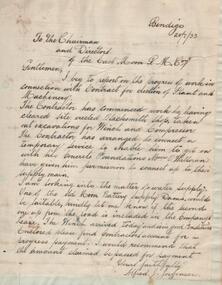 Bendigo
To the Chairman
and Directors
of the East Moon G. M. Coy
Gentlemen,
I beg to report on the progress of work in
connection with Contract for erection of Plant and
Machinery.
The Contractor has commenced work by having
cleared site erected Blacksmith shop taken
out excavations for Winder and Compressor
The Contractor has arranged to connect a
temporary service to enable him to go on
with his Concrete Foundations
have given him permission to connect up to their
supply main.
I am looking into the matter of water supply.
One of the old Koon Battery supply Dams, would
be suitable, kindly let me know if the dams
on up from the land is included in the Company's
lease. The Winder arrived today
please find contractors account for
progress payment. I would recommend that
the amount claimed be passed for payment
Yours faithfully
Alfred